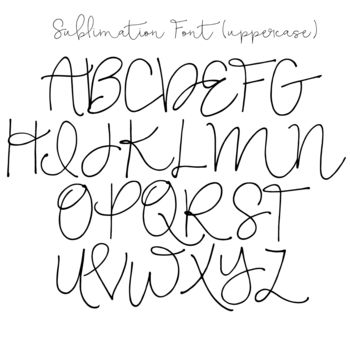 Sublimation Font (uppercase)
ABCDEFG
HIJKLMN
OPQRST
UVWXYZ